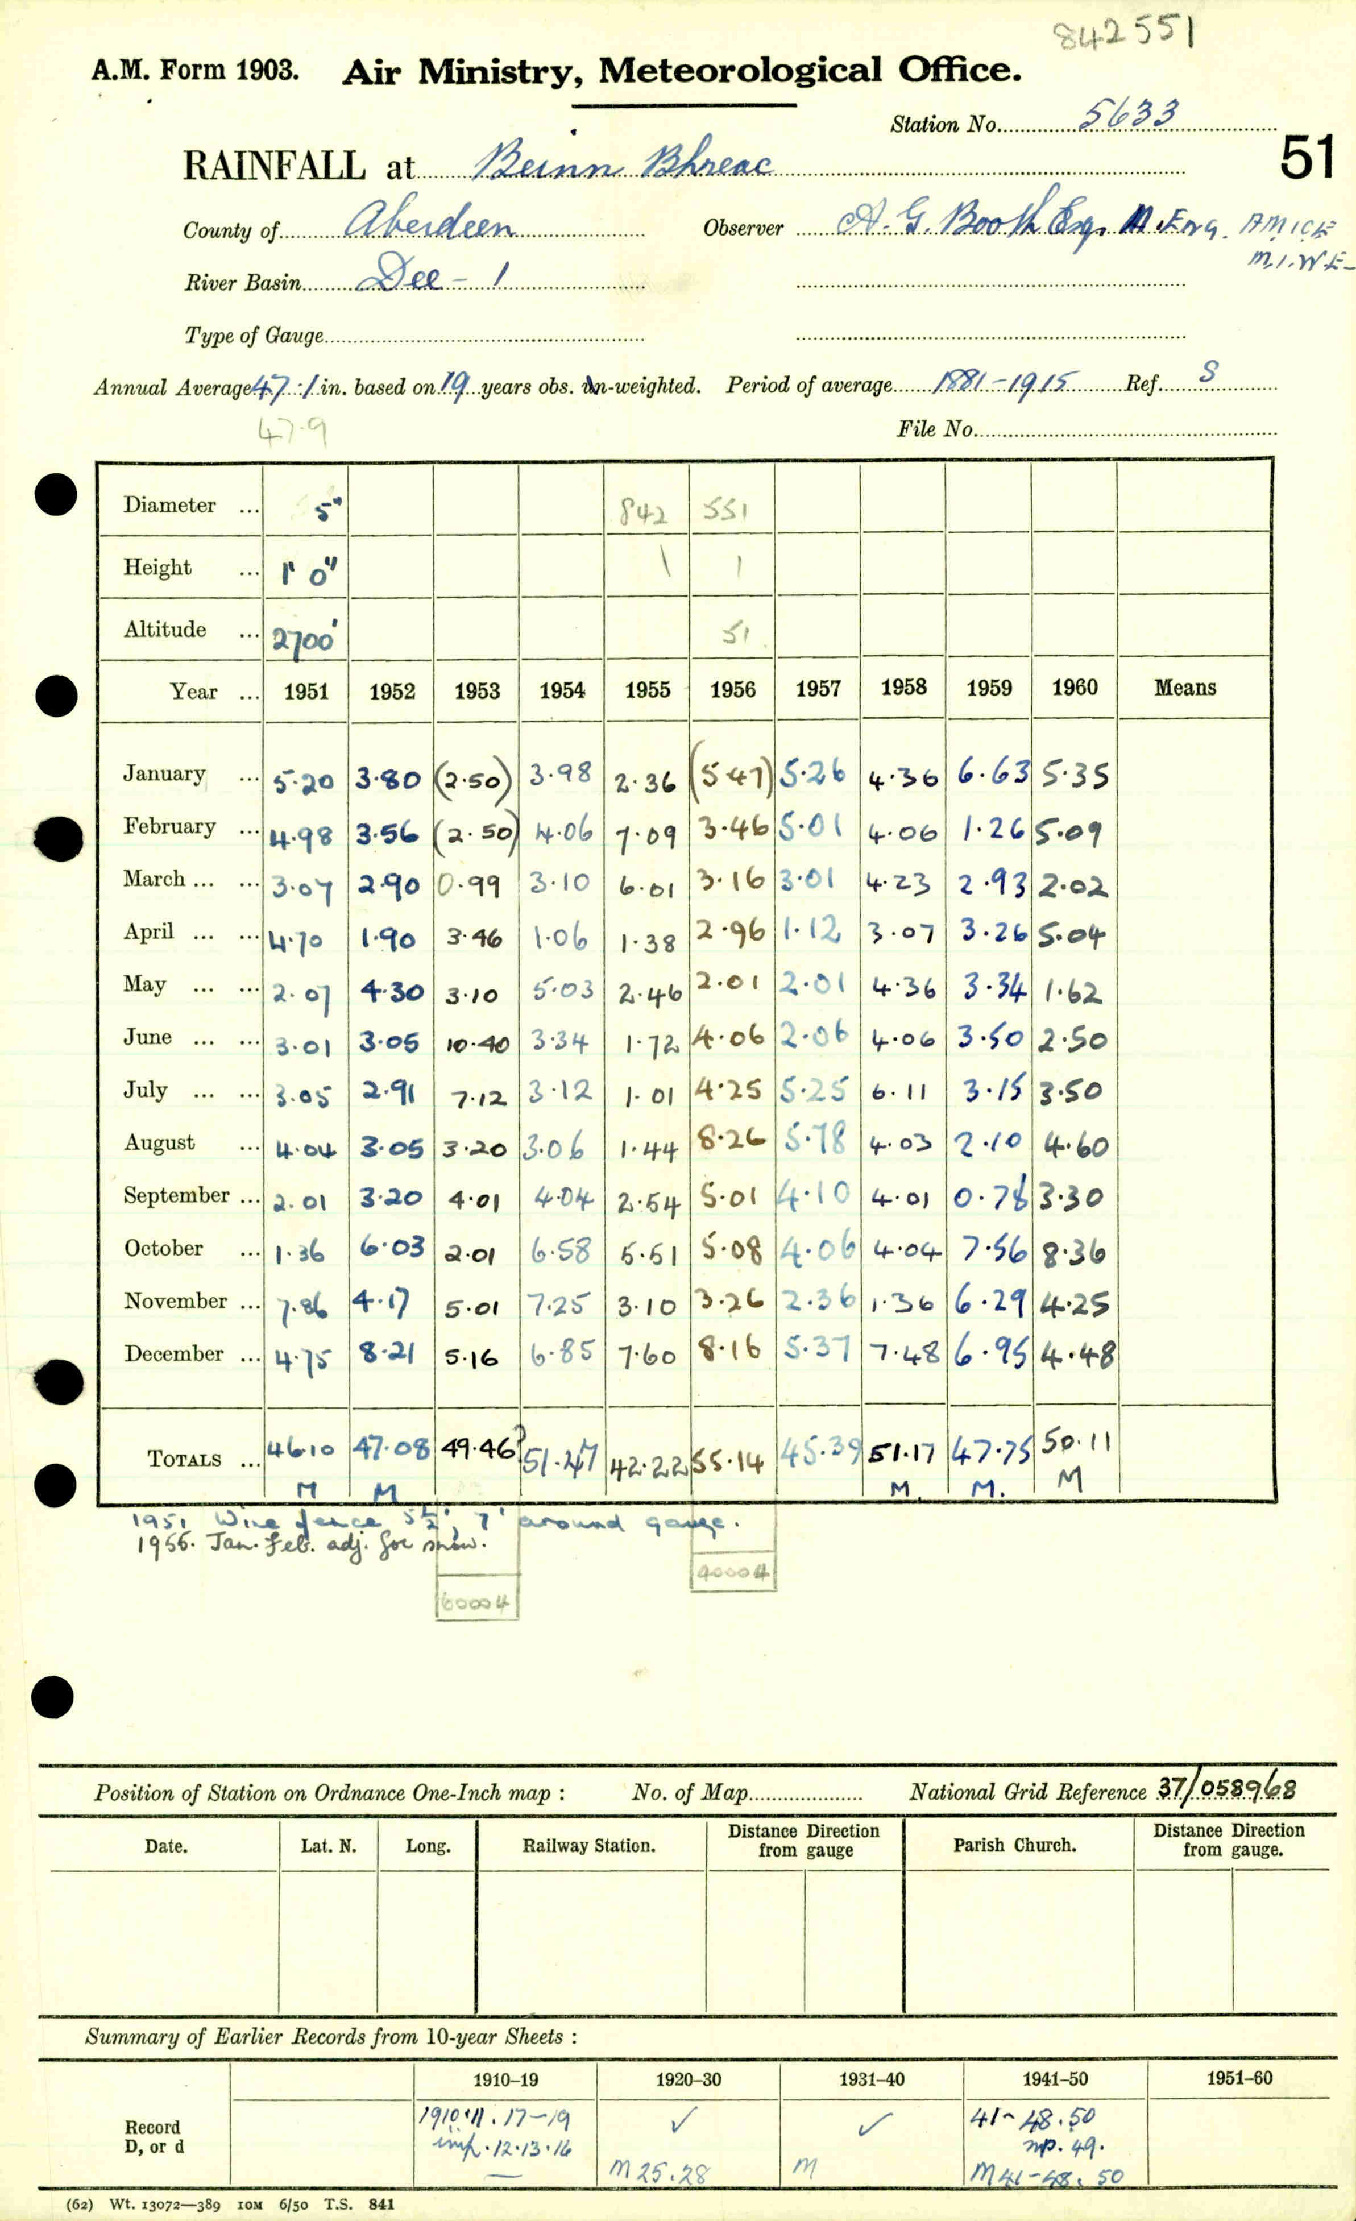 842551
A.M. Form 1903. Air Ministry, Meteorological Office.
Station No. 5633
51
RAINFALL at Beinn Bhreac
County of Aberdeen Observer A. G. Booth Esq. M.Eng. AMICE
M.I.W.E.
River Basin Dee - 1
Type of Gauge
Annual Average 47.1 in. based on 19 years obs. un-weighted. Period of average 1881-1915 Ref. S
47.9
File No.
Diameter ... 5" 842 551
Height ... 1' 0" 1 1
Altitude ... 2700' 51
Year ... 1951 1952 1953 1954 1955 1956 1957 1958 1959 1960 Means
January ... 5.20 3.80 (2.50) 3.98 2.36 (5.47) 5.26 4.36 6.63 5.35
February ... 4.98 3.56 (2.50) 4.06 7.09 3.46 5.01 4.06 1.26 5.09
March ... ... 3.07 2.90 0.99 3.10 6.01 3.16 3.01 4.23 2.93 2.02
April ... ... 4.70 1.90 3.46 1.06 1.38 2.96 1.12 3.07 3.26 5.04
May ... ... 2.07 4.30 3.10 5.03 2.46 2.01 2.01 4.36 3.34 1.62
June ... ... 3.01 3.05 10.40 3.34 1.72 4.06 2.06 4.06 3.50 2.50
July ... ... 3.05 2.91 7.12 3.12 1.01 4.25 5.25 6.11 3.15 3.50
August ... 4.04 3.05 3.20 3.06 1.44 8.26 5.78 4.03 2.10 4.60
September ... 2.01 3.20 4.01 4.04 2.54 5.01 4.10 4.01 0.78 3.30
October ... 1.36 6.03 2.01 6.58 5.51 5.08 4.06 4.04 7.56 8.36
November ... 7.86 4.17 5.01 7.25 3.10 3.26 2.36 1.36 6.29 4.25
December ... 4.75 8.21 5.16 6.85 7.60 8.16 5.37 7.48 6.95 4.48
TOTALS ... 46.10 47.08 49.46? 51.47 42.22 55.14 45.39 51.17 47.75 50.11
M M M. M. M
1951 Wire fence 5½', 7' around gauge.
1955. Jan. Feb. adj. for snow.
40004
60004
Position of Station on Ordnance One-Inch map : No. of Map National Grid Reference 37/058968
Date. Lat. N. Long. Railway Station. Distance from Direction gauge Parish Church. Distance from Direction gauge.
Summary of Earlier Records from 10-year Sheets :
1910-19 1920-30 1931-40 1941-50 1951-60
Record D, or d
1910.11.17-19 ✓ ✓ 41-48.50
imp.12.13.16 np. 49.
M 25.28 M M41-48. 50
(62) Wt. 13072—389 10M 6/50 T.S. 841